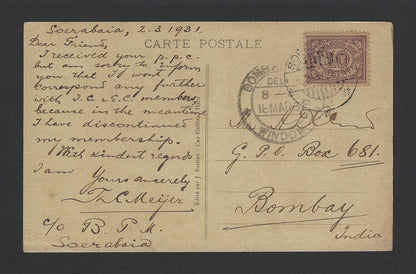 Soerabaia, 2.3.1931.
CARTE POSTALE
Dear Friend,
I received your p.p.c.
but am sorry to inform
you that I won't
correspond any further
with I.C. & E.C. members,
because in the meantime
I have discontinued
my membership.
With kindest regards
I am
Yours sincerely
Meijer
c/o B. P. M.
Soerabaia
BOMBAY
DEL
8 -
16 MAR
WINDOW
10
G. P. O. Box 681.
Bombay
India